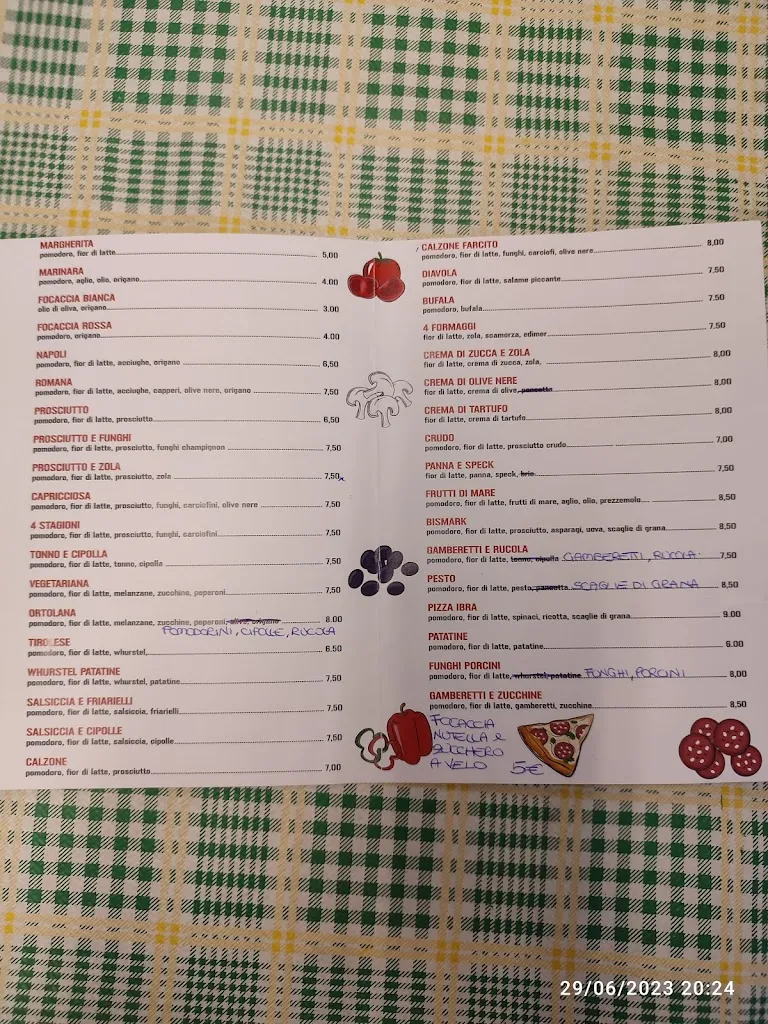 MARGHERITA
pomodoro, fior di latte 5,00
MARINARA
pomodoro, aglio, olio, origano 4.00
FOCACCIA BIANCA
olio di oliva, origano 3.00
FOCACCIA ROSSA
pomodoro, origano 4.00
NAPOLI
pomodoro, fior di latte, acciughe, origano 6,50
ROMANA
pomodoro, fior di latte, acciughe, capperi, olive nere, origano 7,50
PROSCIUTTO
pomodoro, fior di latte, prosciutto 6,50
PROSCIUTTO E FUNGHI
pomodoro, fior di latte, prosciutto, funghi champignon 7,50
PROSCIUTTO E ZOLA
pomodoro, fior di latte, prosciutto, zola 7,50
CAPRICCIOSA
pomodoro, fior di latte, prosciutto, funghi, carciofini, olive nere 7,50
4 STAGIONI
pomodoro, fior di latte, prosciutto, funghi, carciofini 7,50
TONNO E CIPOLLA
pomodoro, fior di latte, tonno, cipolla 7,50
VEGETARIANA
pomodoro, fior di latte, melanzane, zucchine, peperoni 7,50
ORTOLANA
pomodoro, fior di latte, melanzane, zucchine, peperoni, olive, origano 8.00
POMODORINI, CIPOLLE, RUCOLA
TIROLESE
pomodoro, fior di latte, whurstel, 6.50
WHURSTEL PATATINE
pomodoro, fior di latte, whurstel, patatine 7,50
SALSICCIA E FRIARIELLI
pomodoro, fior di latte, salsiccia, friarielli 7,50
SALSICCIA E CIPOLLE
pomodoro, fior di latte, salsiccia, cipolle 7,50
CALZONE
pomodoro, fior di latte, prosciutto 7,00
CALZONE FARCITO
pomodoro, fior di latte, funghi, carciofi, olive nere 8,00
DIAVOLA
pomodoro, fior di latte, salame piccante 7,50
BUFALA
pomodoro, bufala 7,50
4 FORMAGGI
fior di latte, zola, scamorza, edimer 7.50
CREMA DI ZUCCA E ZOLA
fior di latte, crema di zucca, zola, 8,00
CREMA DI OLIVE NERE
fior di latte, crema di olive, pancetta 8,00
CREMA DI TARTUFO
fior di latte, crema di tartufo 8,00
CRUDO
pomodoro, fior di latte, prosciutto crudo 7,00
PANNA E SPECK
fior di latte, panna, speck, brie 7,50
FRUTTI DI MARE
pomodoro, fior di latte, frutti di mare, aglio, olio, prezzemolo 8,50
BISMARK
pomodoro, fior di latte, prosciutto, asparagi, uova, scaglie di grana 8,50
GAMBERETTI E RUCOLA
pomodoro, fior di latte, tonno, cipolla GAMBERETTI, RUCOLA 7,50
PESTO
pomodoro, fior di latte, pesto, pancetta SCAGLIE DI GRANA 8,50
PIZZA IBRA
pomodoro, fior di latte, spinaci, ricotta, scaglie di grana 9.00
PATATINE
pomodoro, fior di latte, patatine 6.00
FUNGHI PORCINI
pomodoro, fior di latte, whurstel, patatine FUNGHI, PORCINI 8,00
GAMBERETTI E ZUCCHINE
pomodoro, fior di latte, gamberetti, zucchine 8,50
FOCACCIA
NUTELLA e
ZUCCHERO
A VELO 5€
29/06/2023 20:24